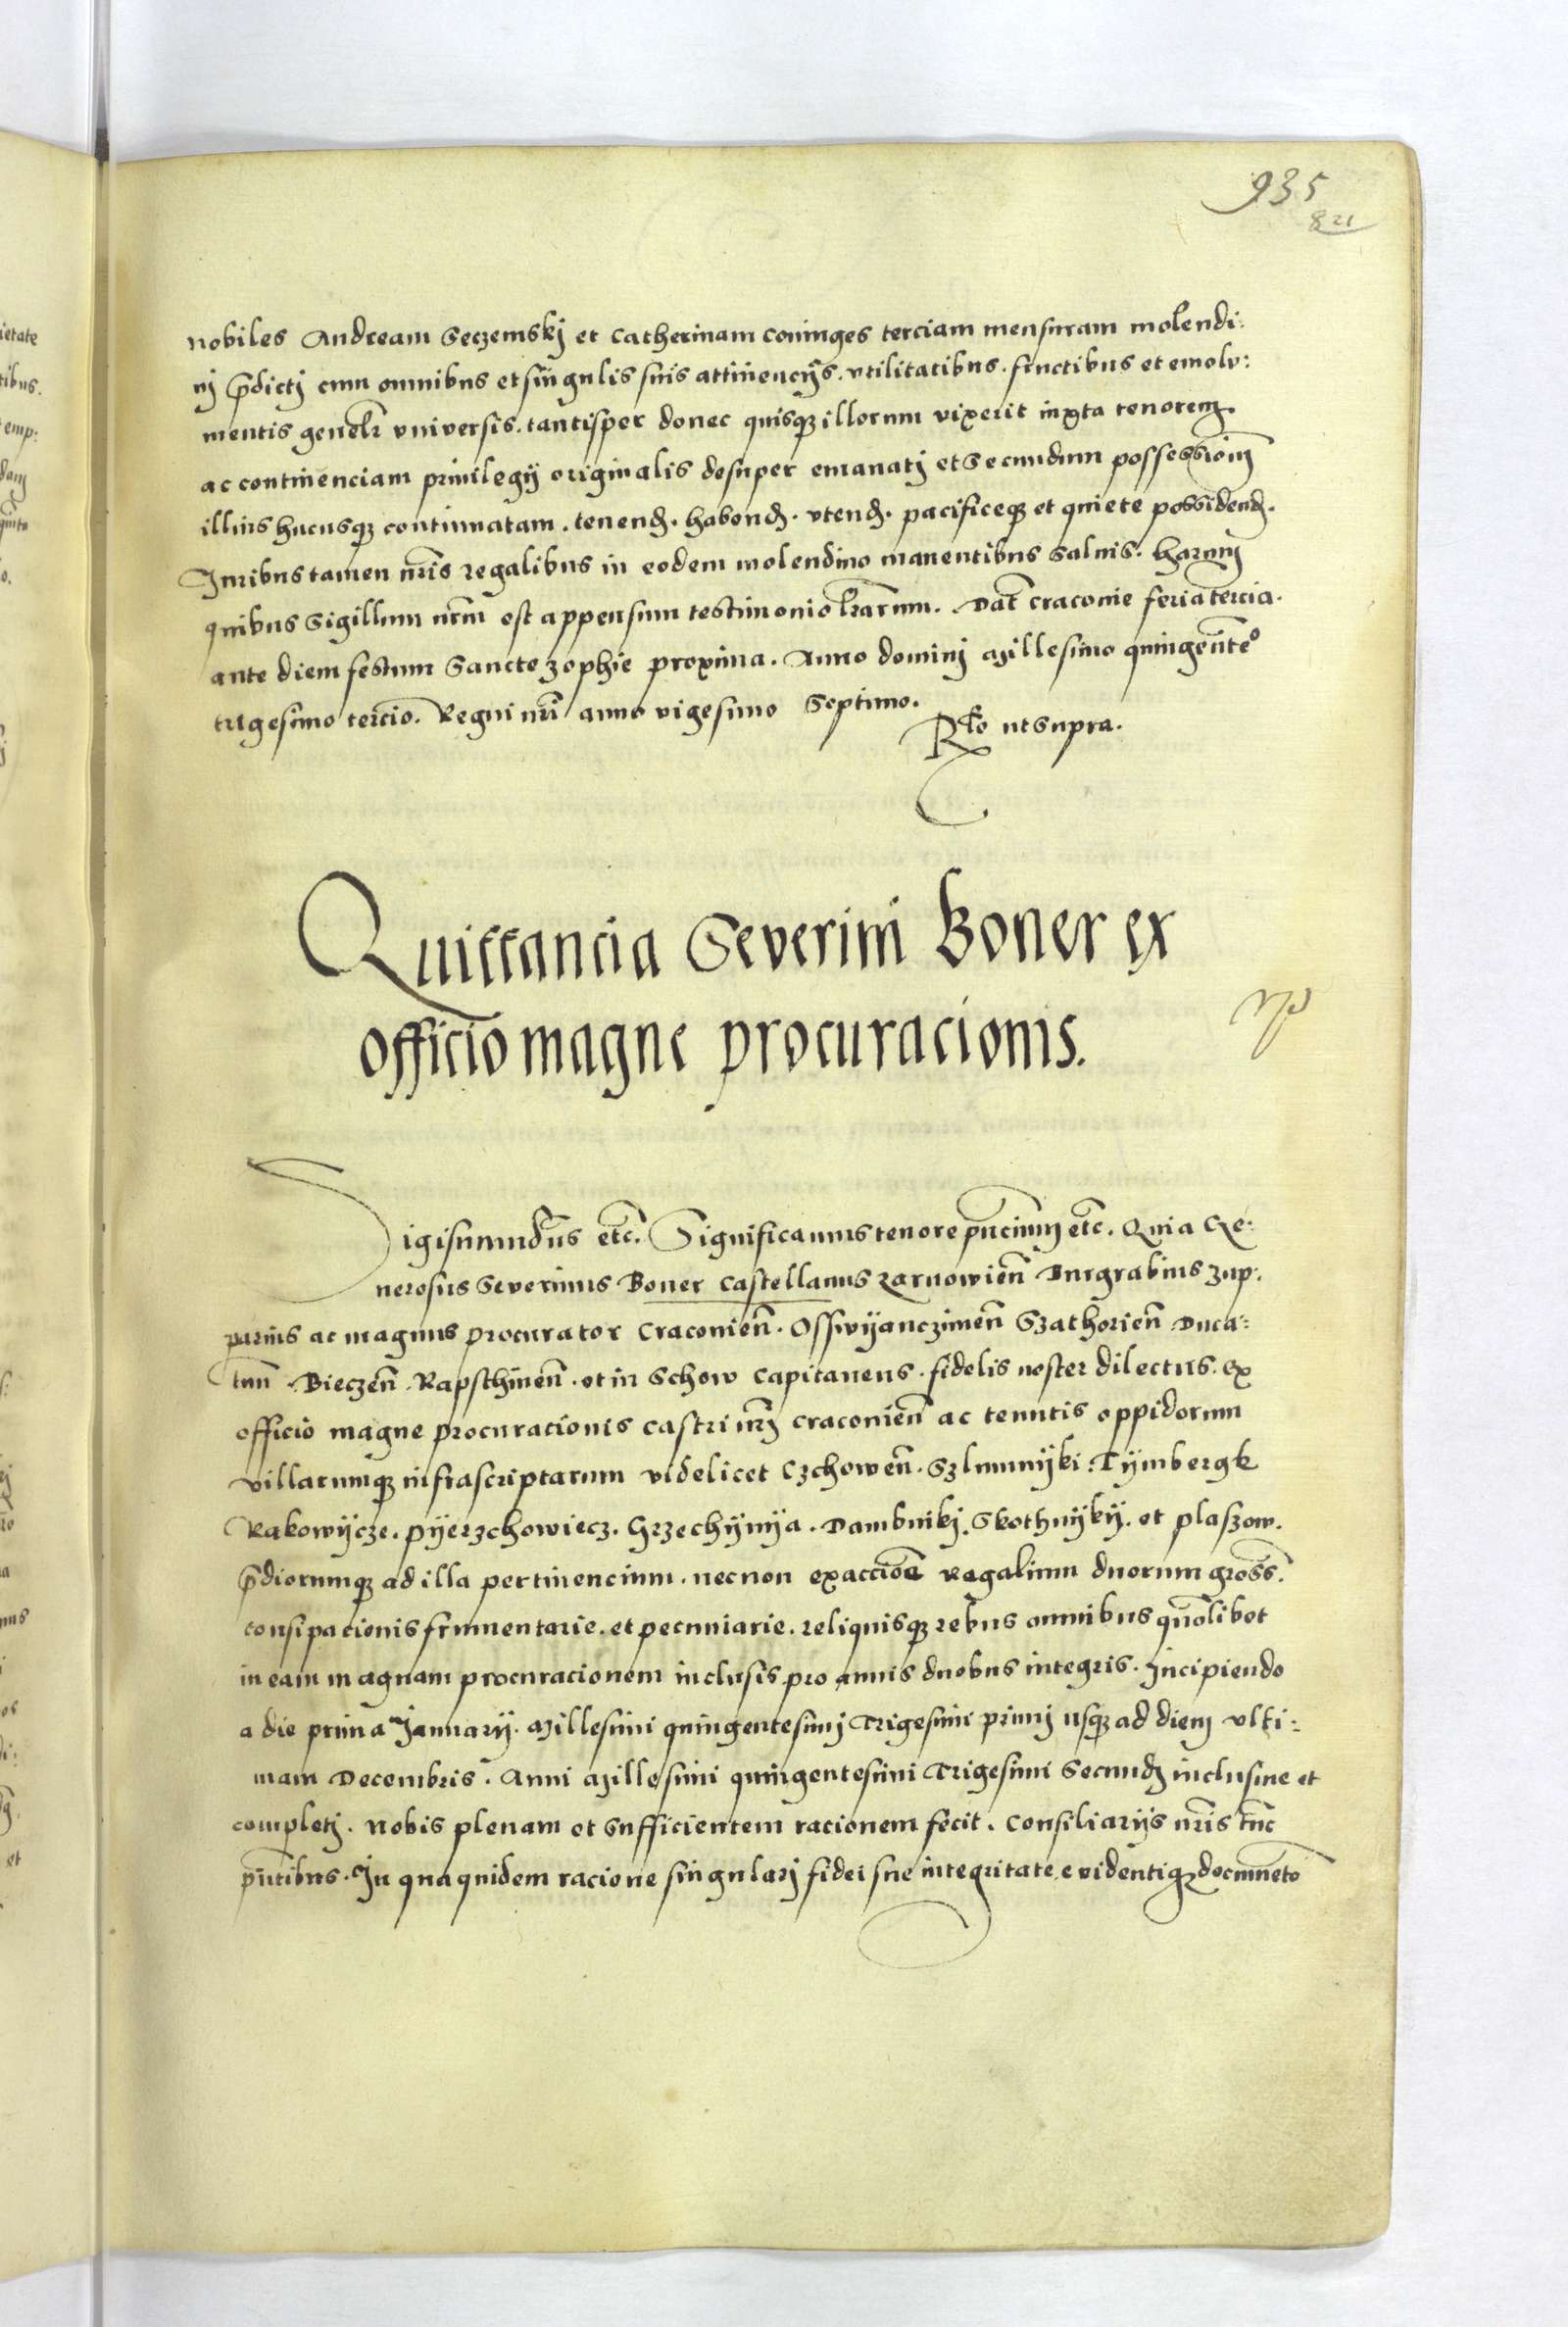 935
821
nobiles Andream Seczemskj et Catherinam coniuges terciam mensuram molendi:
nj p̄dictj cum omnibus et singulis suis attinencijs. vtilitatibus. fructibus et emolu:
mentis genelr̄ vniversis. tantisper donec quisqȝ illorum vixerit iuxta tenorem.
ac continenciam priuilegij originalis desuper emanatj et Secundum possessionē
illius hucusqȝ continuatam. tenenđ. habenđ. vtenđ. pacificeqȝ et quiete possidenđ.
Juribus tamen nr̄is regalibus in eodem molendino manentibus saluis. harum
quibus Sigillum nr̄m est appensum testimonio lr̄arum. Dat̄ Craconie feria tercia.
ante diem festum Sancte Zophie proxima. Anno dominj Millesimo quingen̄te°
trigesimo tercio. Regni nr̄i anno vigesimo Septimo.
Rl̄o ut Supra.
Quittancia Severini Boner ex
officio magne procuracionis.
Sigismundus etc̄. Significamus tenore pn̄cium etc̄. Quia Ge:
nerosus Severinus Boner Castellanus Zarnowien̄ Burgrabius Zup:
parius ac magnus procurator Craconien̄. Osswijanczimen̄ Szathorien̄ Duca:
tuu͂ Bieczen̄. Rapsthinen̄. et in Schow Capitaneus. fidelis noster dilectus. Ex
officio magne procuracionis castri nr̄j Craconien̄ ac tenutis oppidorum
villarumqȝ infrascriptarum videlicet Czchowen̄. Szlmunijki. Tijmbergk
Rakowijcze. Pijerzchowiecz. Grzechijnija. Dambnikj. Skothnijkij. et Plaszow.
p̄diorumqȝ ad illa pertinencium. necnon exaccione regalium duorum gross̄.
consipacionis frumentarie. et pecuniarie. reliquisqȝ rebus omnibus quōlibet
in eam magnam procuracionem inclusis pro annis duobus integris. Incipiendo
a die prima Januarij. Millesimi quingentesimj Trigesimi primj usqȝ ad diem vlti:
mam Decembris. Anni Millesimi quingentesimi Trigesimi Secundj inclusiue et
completj. nobis plenam et Sufficientem racionem fecit. Consiliarijs nr̄is tūc
pn̄tibus. In qua quidem racione singularj fidei sue integritate evidentiqȝ documēto